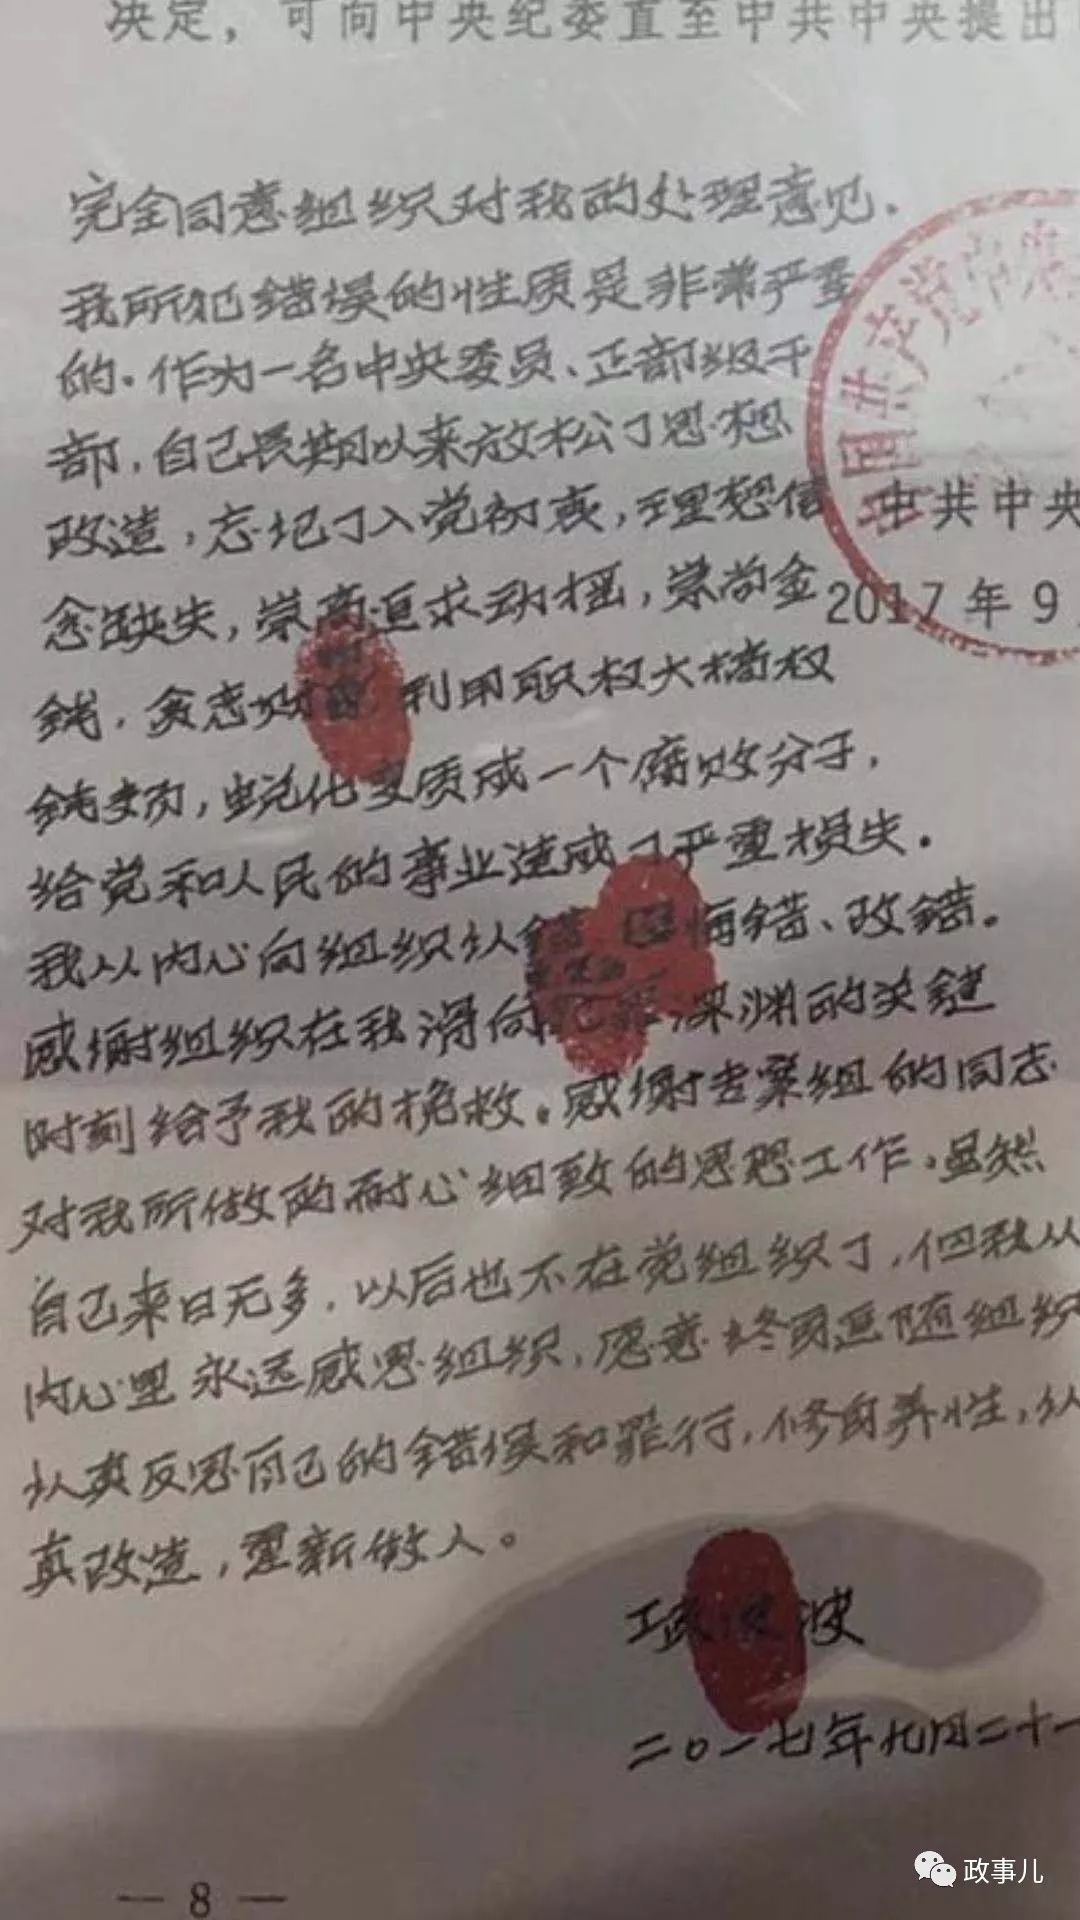 决定，可向中央纪委直至中共中央提出
完全同意组织对我的处理意见.
我所犯错误的性质是非常严重
的.作为一名中央委员、正部级干
部，自己长期以来放松了思想
改造，忘记了入党初衷，理想信
念缺失，崇高追求动摇，崇尚金
钱，贪恋 利用职权大搞权
钱交易，蜕化变质成一个腐败分子，
给党和人民的事业造成了严重损失.
我从内心向组织认错 悔错、改错。
感谢组织在我滑向 深渊的关键
时刻给予我的挽救。感谢专案组的同志
对我所做的耐心细致的思想工作。虽然
自己来日无多，以后也不在党组织了，但我从
内心里永远感恩组织，愿意终身追随组织
认真反思自己的错误和罪行，修身养性，认
真改造，重新做人。
中国共产党
中共中央
2017年9
波
二〇一七年九月二十一
— 8 —
政事儿